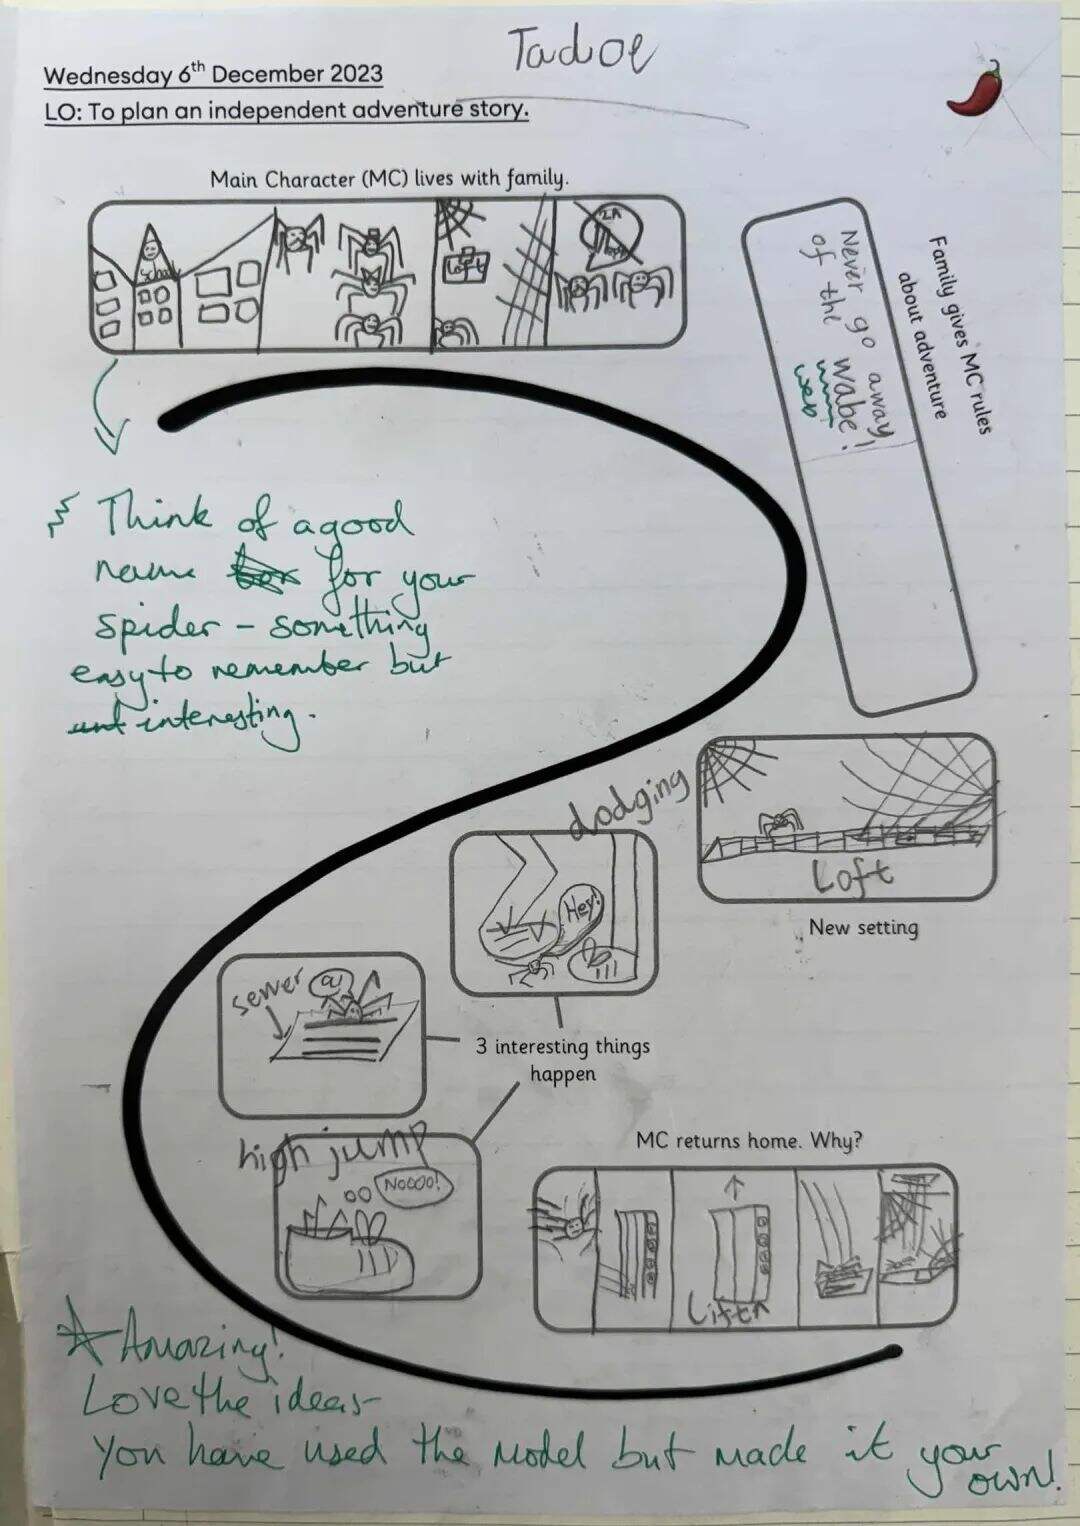 Tadoe
Wednesday 6th December 2023
LO: To plan an independent adventure story.
Main Character (MC) lives with family.
School
Loft
Family gives MC rules
about adventure
Never go away
of the wabe!
web
Think of a good
name for your
spider - something
easy to remember but
interesting.
dodging
Hey!
Loft
New setting
sewer
a!
3 interesting things
happen
high jump
Noooo!
MC returns home. Why?
Lift
Amazing!
Love the ideas-
You have used the model but made it your
own!